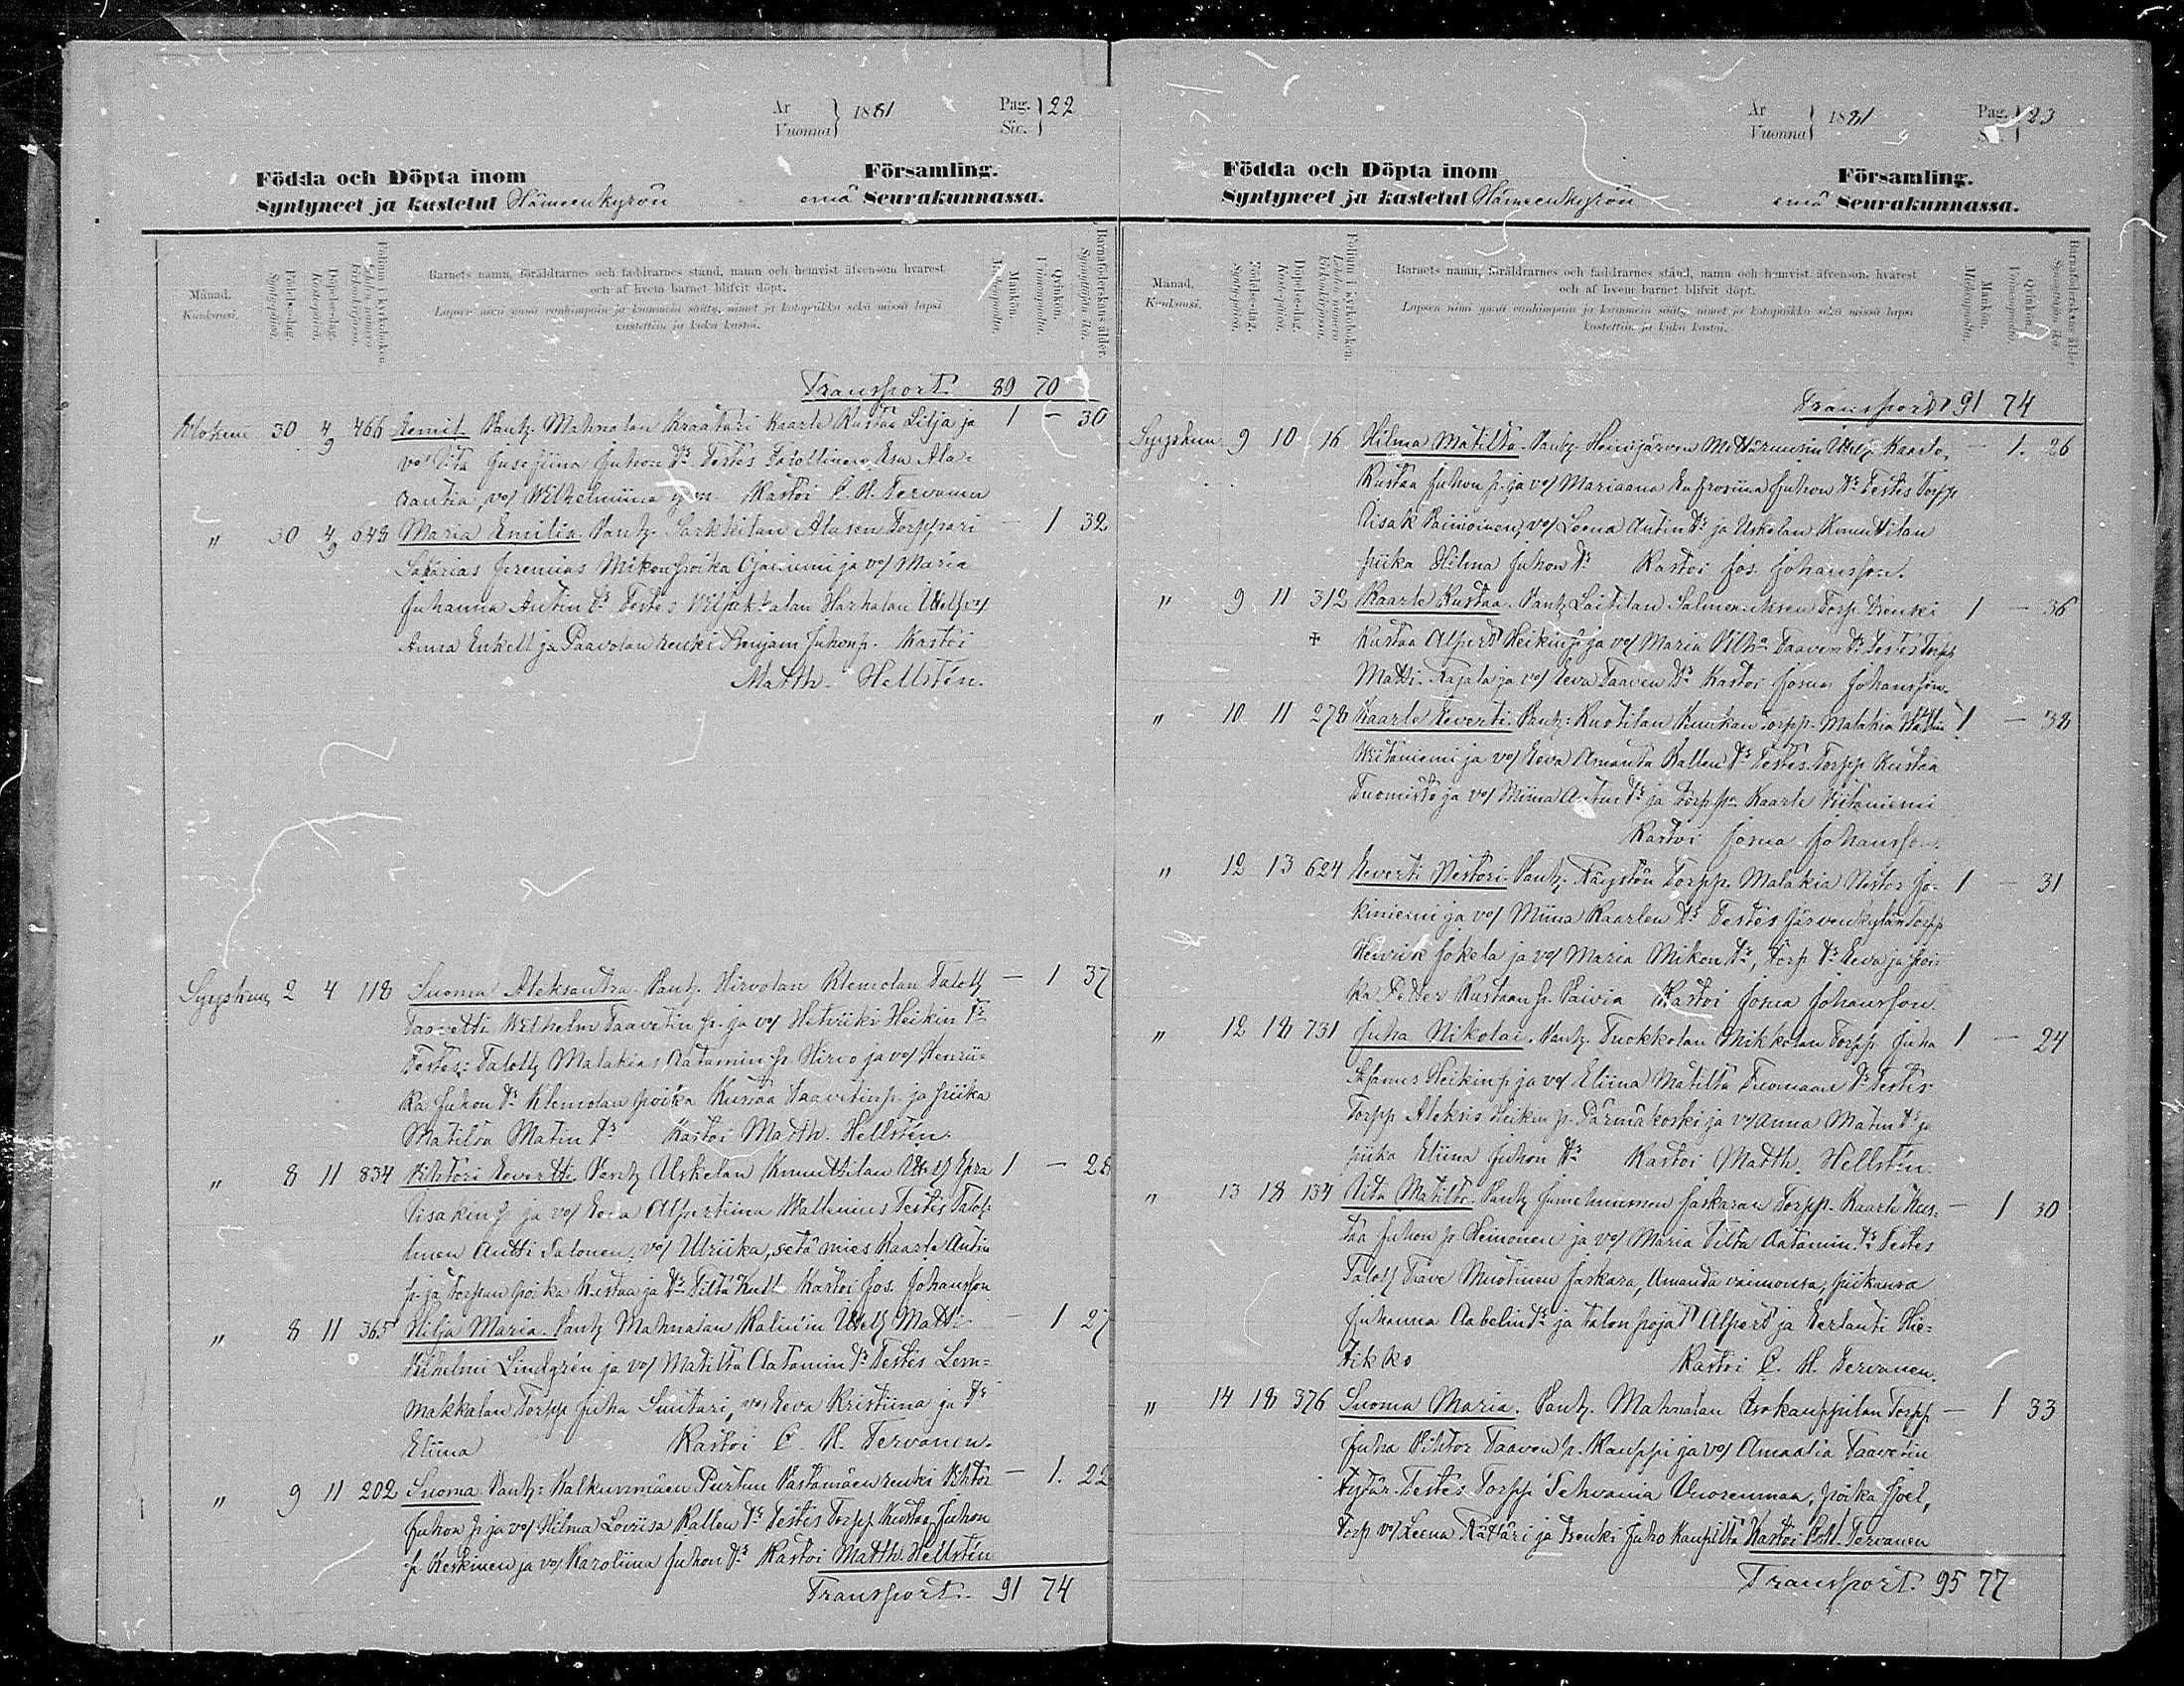 År
Vuonna } 1881
Pag.
Siv. } 22
Födda och Döpta inom Församling.
Syntyneet ja kastetut Hämeenkyrön emä Seurakunnassa.
Månad.
Kuukausi.
Födelsedag.
Syntypäivä.
Döpelsedag.
Kastepäivä.
Folium i kyrkoboken.
Barnets namn, föräldrarnes och faddrarnes stånd, namn och hemvist äfvensom hvarest
och af hvem barnet blifvit döpt.
Lapsen nimi ynnä vanhimpain ja kummein sääty, nimet ja kotopaikka sekä missä lapsi
kastettiin ja kuka kastoi.
Mankön.
Miehenpuolia.
Qvinkön.
Vaimonpuolia.
Barnaföderskans ålder.
Synnyttäjän ikä.
Transport. 89 70
Elokuu 30 4/9 466 Eemil Vanh. Mahnalan Kraatari Kaarle Kustaa Lilja ja 1 – 30
vo/ Iita Josefiina Juhon tr. Testes Talollinen Esa Ala-
rantia, vo/ Wilhelmiina Kastoi C. H. Tervanen
" 30 4/9 648 Maria Emilia. Vanh. Sarkkilan Alasen Torppari – 1 32
Sakarias Jeremias Mikonpoika Ojaniemi ja vo/ Maria
Juhanna Antin tr. Testes Viljakkalan Harhalan Itsell. vo/
Anna Enkell ja Paavolan renki Penjam Juhonp. Kastoi
Matth. Hellstén.
Syyskuu 2 4 118 Suoma Aleksantra. Vanh. Hirvolan Klemolan Taloll. – 1 37
Taavetti Wilhelm Taavetin p. ja vo/ Hetviiki Heikin tr
Testes: Taloll. Malakias Aatamin p. Hirvo ja vo/ Henrii-
ka Juhon tr. Klemolan poika Kustaa Taavetin p. ja piika
Matilta Matin tr Kastoi Matth. Hellstén.
" 8 11 834 Vihtori Eevertti. Vanh. Uskelan Knuuttilan Itsell. Esra 1 – 28
Iisakin p. ja vo/ Eeva Alpertiina Wallenius Testes Talol-
linen Antti Talonen, vo/ Ulriika, setä mies Kaarle Antin
p. ja Torpan poika Kustaa ja tr. Tilta Kull. Kastoi Jos. Johansson
" 8 11 365 Hilja Maria. Vanh. Mahnalan Kalinin Itsell. Matti – 1 27
Vilhelmi Lindgrén ja vo/ Matilta Aatamin tr. Testes Lem-
makkalan Torpp. Juha Suutari, vo/ Eeva Kristiina ja tr
Eliina Kastoi C. H. Tervanen.
" 9 11 202 Suoma. Vanh: Kalkunmäen Purtun Vastamäen renki Vihtor – 1. 22
Juhon p. ja vo/ Hilma Loviisa Kallen tr. Testes Torpp. Kustaa Juhon
p. Keskinen ja vo/ Karoliina Juhon tr. Kastoi Matth. Hellstén
Transport. 91 74
År
Vuonna } 1881
Pag.
Siv. } 23
Födda och Döpta inom Församling.
Syntyneet ja kastetut Hämeenkyrön emä Seurakunnassa.
Månad.
Kuukausi.
Födelsedag.
Syntypäivä.
Döpelsedag.
Kastepäivä.
Folium i kyrkoboken.
Barnets namn, föräldrarnes och faddrarnes stånd, namn och hemvist äfvensom hvarest
och af hvem barnet blifvit döpt.
Lapsen nimi ynnä vanhimpain ja kummein sääty, nimet ja kotopaikka sekä missä lapsi
kastettiin ja kuka kastoi.
Mankön.
Miehenpuolia.
Qvinkön.
Vaimonpuolia.
Barnaföderskans ålder
Synnyttäjän ikä
Transport 91 74
Syyskuu 9 10 16 Hilma Matilta. Vanh. Heinijärven Itsell. Kaarlo, – 1. 26
Kustaa Juhon p. ja vo/ Mariaana Eufrosiina Juhon tr. Testes Torpp.
Iisak Vainionen, vo/ Leena Antin tr ja Uskelan Knuuttilan
piika Hilma Juhon tr Kastoi Jos. Johansson.
" 9 11 312 Kaarle Kustaa. Vanh. Laitilan Torp. Renki 1 – 36
+ Kustaa Alpert Heikin p. ja vo/ Maria Vilh:a Taaven tr. Testes Torpp.
Matti Rajala ja vo/ Eeva Taaven tr. Kastoi Josua Johansson.
" 10 11 278 Kaarle Eeverti. Vanh: Kuotilan Kuukan Torpp. Malakia 1 – 38
Viitaniemi ja vo/ Eeva Amanda Kallen tr. Testes. Torpp. Kustaa
Tuomisto ja vo/ Miina Antin tr. ja Torpp. Kaarle Viitaniemi
Kastoi Josua Johansson.
" 12 13 624 Eeverti Nestori. Vanh. Räystön Torpp. Malakia Nestor Jo- 1 – 31
kiniemi ja vo/ Miina Kaarlen tr. Testes Järvenkylän Torpp
Henrik Jokela ja vo/ Maria Mikon tr, Torp. tr. Eeva ja poi-
ka Petter Kustaan p. Päiviä Kastoi Josua Johansson.
" 12 18 731 Juha Nikolai. Vanh. Tuokkolan Mikkolan Torpp. Juha 1 – 24
Stefanus Heikin p. ja vo/ Eliina Matilta Tuomaan tr. Testes
Torpp. Aleksis Heikin p. Pärmäkoski ja vo/ Anna Matin tr ja
piika Eliina Juhon tr. Kastoi Matth. Hellstén.
" 13 18 134 Iita Matilta. Vanh. Jumesniemen Jaskaran Torpp. Kaarle Kus- – 1 30
taa Juhon p. Heinonen ja vo/ Maria Tilta Aatamin. tr. Testes
Taloll. Taave Muotinen Jaskara, Amanda vaimonsa, piikansa
Juhanna Aabelin tr ja talon pojat Alpert ja Eerlanti Hie-
tikko Kastoi C. H. Tervanen.
" 14 18 376 Suoma Maria. Vanh. Mahnalan Isokauppilan Torpp. – 1 33
Juha Vihtor Taaven p. Kauppi ja vo/ Amaalia Taavetin
tytär. Testes. Torpp. Sehvania Vuorenmaa, poika Joel,
Torp. vo/ Leena Rättäri ja Renki Juho Kauppila Kastoi C. H. Tervanen
Transport. 95 77